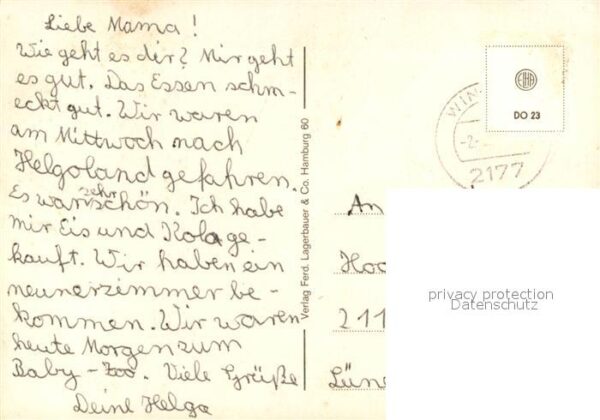 Liebe Mama!
Wie geht es dir? Mir geht
es gut. Das Essen schm-
eckt gut. Wir waren
am Mittwoch nach
Helgoland gefahren.
Es war sehr schön. Ich habe
mir Eis und Kola ge-
kauft. Wir haben ein
neunerzimmer be-
kommen. Wir waren
heute Morgen zum
Baby-Zoo. Viele Grüße
Deine Helga
Verlag Ferd. Lagerbauer & Co. Hamburg 60
WIN
-2.
2177
EHA
DO 23
An
Hoo
211
Lüne
privacy protection
Datenschutz